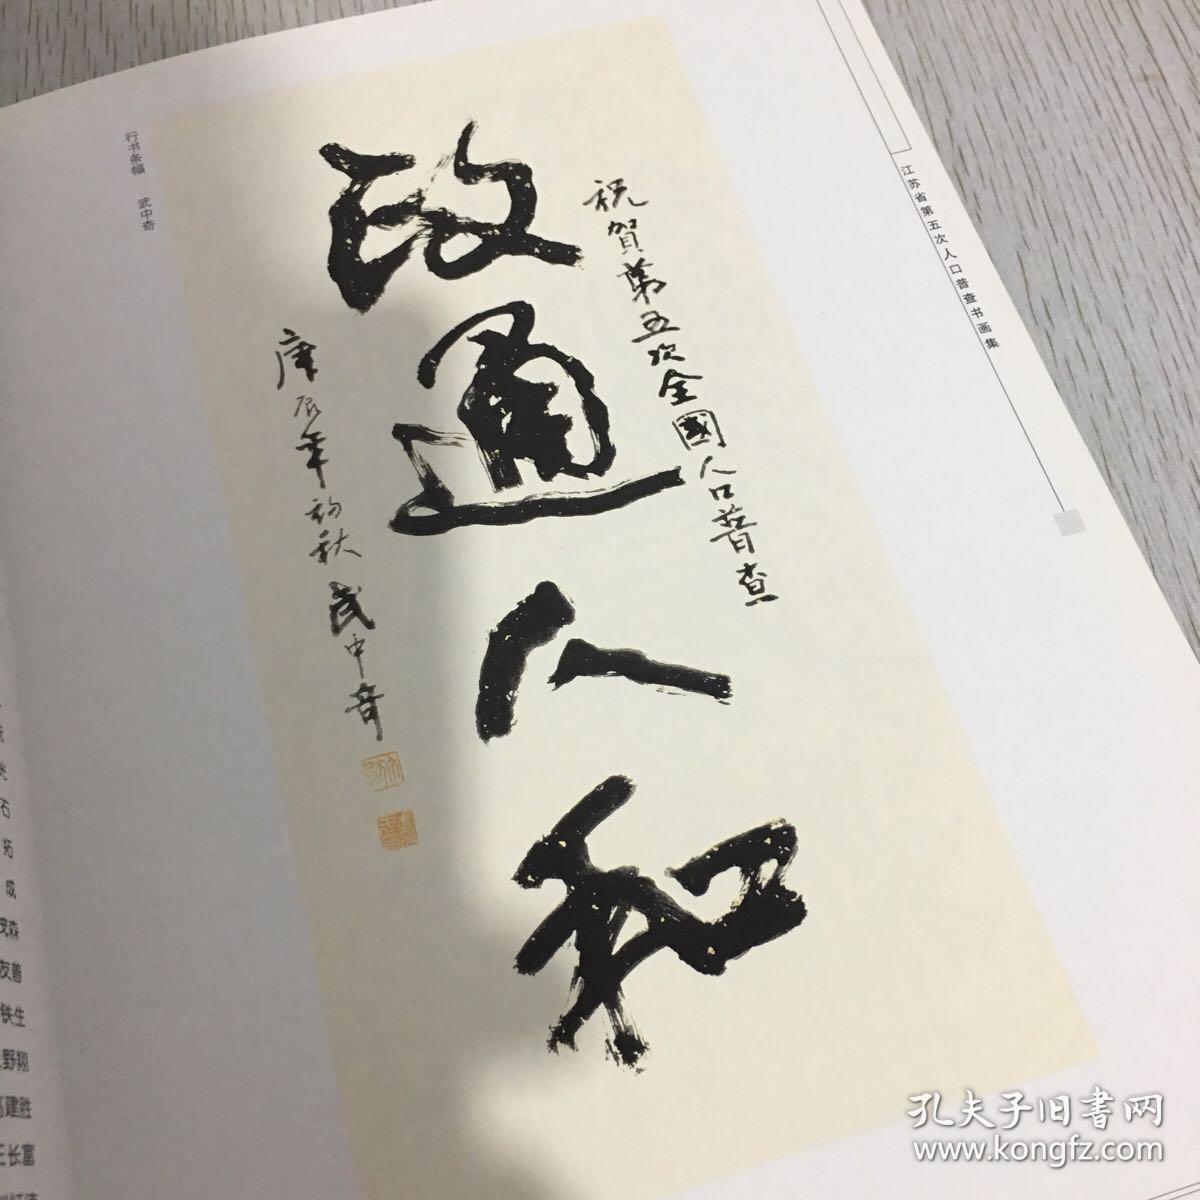 江苏省第五次人口普查书画集
祝賀第五次全國人口普查
政通人和
庚辰年初秋 武中奇
行书条幅 武中奇
光
石
拓
成
茂森
友善
铁生
野翔
建胜
王长富
孔夫子旧书网
www.kongfz.com